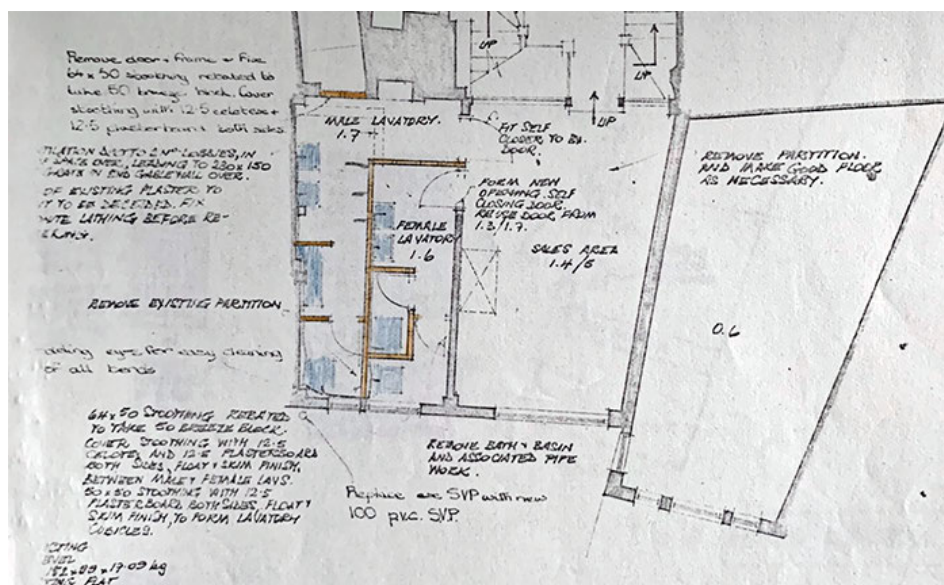 Remove door + frame + Fix
64 x 50 stoothing rebated to
take 50 breeze block. Cover
stoothing with 12.5 celotex +
12.5 plasterboard both sides
TILATION DITTO 2 Nº LOBBIES, IN
SPACE OVER, LEADING TO 230 x 150
IN END GABLE WALL OVER.
OF EXISTING PLASTER TO
T TO BE DECIDED. FIX
LATHING BEFORE RE-
REMOVE EXISTING PARTITION
eyes for easy cleaning
of all bends
64 x 50 STOOTHING REBATED
TO TAKE 50 BREEZE BLOCK.
COVER STOOTHING WITH 12.5
CELOTEX AND 12.5 PLASTERBOARD
BOTH SIDES, FLOAT & SKIM FINISH,
BETWEEN MALE & FEMALE LAVS.
50 x 50 STOOTHING WITH 12.5
PLASTERBOARD BOTH SIDES, FLOAT &
SKIM FINISH, TO FORM LAVATORY
CUBICLES.
152 x 89 x 17.09 kg
FLAT
UP
UP
UP
MALE LAVATORY.
1.7
FIT SELF
CLOSER TO EX.
DOOR.
FORM NEW
OPENING. SELF
CLOSING DOOR.
REUSE DOOR FROM
1.3/1.7.
FEMALE
LAVATORY
1.6
SALES AREA
1.4/5
REMOVE PARTITION.
AND MAKE GOOD FLOOR
AS NECESSARY.
0.6
REMOVE BATH & BASIN
AND ASSOCIATED PIPE
WORK.
Replace SVP with new
100 pvc. SVP.